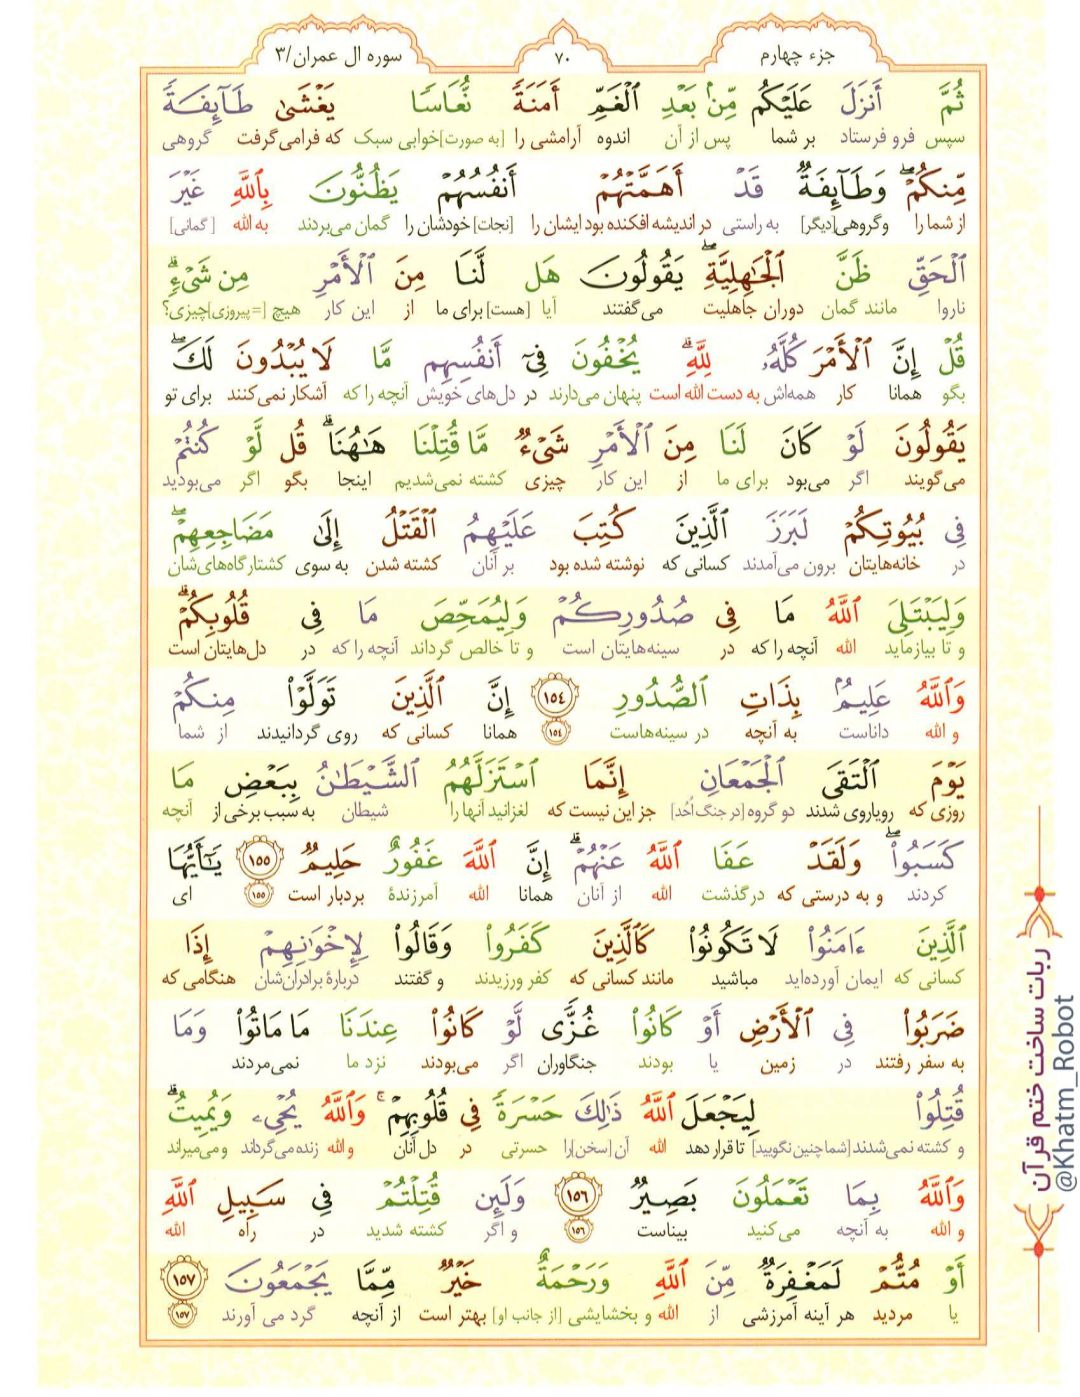 جزء چهارم
٧٠
سوره ال عمران/٣
ثُمَّ أَنزَلَ عَلَيْكُم مِّنۢ بَعْدِ ٱلْغَمِّ أَمَنَةً نُّعَاسًا يَغْشَىٰ طَآئِفَةً
سپس فرو فرستاد بر شما پس از آن اندوه آرامشی را [به صورت]خوابی سبک که فرامی‌گرفت گروهی
مِّنكُمْ ۖ وَطَآئِفَةٌ قَدْ أَهَمَّتْهُمْ أَنفُسُهُمْ يَظُنُّونَ بِٱللَّهِ غَيْرَ
از شما را وگروهی[دیگر] به راستی در اندیشه افکنده بود ایشان را [نجات] خودشان را گمان می‌بردند به الله [گمانی]
ٱلْحَقِّ ظَنَّ ٱلْجَٰهِلِيَّةِ ۖ يَقُولُونَ هَل لَّنَا مِنَ ٱلْأَمْرِ مِن شَىْءٍ ۗ
ناروا مانند گمان دوران جاهلیت می‌گفتند آیا [هست] برای ما از این کار هیچ [=پیروزی]چیزی؟
قُلْ إِنَّ ٱلْأَمْرَ كُلَّهُۥ لِلَّهِ ۗ يُخْفُونَ فِىٓ أَنفُسِهِم مَّا لَا يُبْدُونَ لَكَ ۖ
بگو همانا کار همه‌اش به دست الله است پنهان می‌دارند در دل‌های خویش آنچه را که آشکار نمی‌کنند برای تو
يَقُولُونَ لَوْ كَانَ لَنَا مِنَ ٱلْأَمْرِ شَىْءٌ مَّا قُتِلْنَا هَٰهُنَا ۗ قُل لَّوْ كُنتُمْ
می‌گویند اگر می‌بود برای ما از این کار چیزی کشته نمی‌شدیم اینجا بگو اگر می‌بودید
فِى بُيُوتِكُمْ لَبَرَزَ ٱلَّذِينَ كُتِبَ عَلَيْهِمُ ٱلْقَتْلُ إِلَىٰ مَضَاجِعِهِمْ ۖ
در خانه‌هایتان برون می‌آمدند کسانی که نوشته شده بود بر آنان کشته شدن به سوی کشتارگاه‌های‌شان
وَلِيَبْتَلِىَ ٱللَّهُ مَا فِى صُدُورِكُمْ وَلِيُمَحِّصَ مَا فِى قُلُوبِكُمْ ۗ
و تا بیازماید الله آنچه را که در سینه‌هایتان است و تا خالص گرداند آنچه را که در دل‌هایتان است
وَٱللَّهُ عَلِيمٌۢ بِذَاتِ ٱلصُّدُورِ ١٥٤ إِنَّ ٱلَّذِينَ تَوَلَّوْا۟ مِنكُمْ
و الله داناست به آنچه در سینه‌هاست ١٥٤ همانا کسانی که روی گردانیدند از شما
يَوْمَ ٱلْتَقَى ٱلْجَمْعَانِ إِنَّمَا ٱسْتَزَلَّهُمُ ٱلشَّيْطَٰنُ بِبَعْضِ مَا
روزی که رویاروی شدند دو گروه[در جنگ اُحُد] جز این نیست که لغزانید آنها را شیطان به سبب برخی از آنچه
كَسَبُوا۟ ۖ وَلَقَدْ عَفَا ٱللَّهُ عَنْهُمْ ۗ إِنَّ ٱللَّهَ غَفُورٌ حَلِيمٌ ١٥٥ يَٰٓأَيُّهَا
کردند و به درستی که درگذشت الله از آنان همانا الله آمرزندهٔ بردبار است ١٥٥ ای
ٱلَّذِينَ ءَامَنُوا۟ لَا تَكُونُوا۟ كَٱلَّذِينَ كَفَرُوا۟ وَقَالُوا۟ لِإِخْوَٰنِهِمْ إِذَا
کسانی که ایمان آورده‌اید مباشید مانند کسانی که کفر ورزیدند و گفتند دربارهٔ برادران‌شان هنگامی که
ضَرَبُوا۟ فِى ٱلْأَرْضِ أَوْ كَانُوا۟ غُزًّى لَّوْ كَانُوا۟ عِندَنَا مَا مَاتُوا۟ وَمَا
به سفر رفتند در زمین یا بودند جنگاوران اگر می‌بودند نزد ما نمی‌مردند
قُتِلُوا۟ لِيَجْعَلَ ٱللَّهُ ذَٰلِكَ حَسْرَةً فِى قُلُوبِهِمْ ۗ وَٱللَّهُ يُحْىِۦ وَيُمِيتُ ۗ
و کشته نمی‌شدند[شما چنین نگویید] تا قرار دهد الله آن [سخن]را حسرتی در دل آنان و الله زنده می‌گرداند و می‌میراند
وَٱللَّهُ بِمَا تَعْمَلُونَ بَصِيرٌ ١٥٦ وَلَئِن قُتِلْتُمْ فِى سَبِيلِ ٱللَّهِ
و الله به آنچه می‌کنید بیناست ١٥٦ و اگر کشته شدید در راه الله
أَوْ مُتُّمْ لَمَغْفِرَةٌ مِّنَ ٱللَّهِ وَرَحْمَةٌ خَيْرٌ مِّمَّا يَجْمَعُونَ ١٥٧
یا مردید هر آینه آمرزشی از الله و بخشایشی [از جانب او] بهتر است از آنچه گرد می آورند ١٥٧
ربات ساخت ختم قرآن
@Khatm_Robot